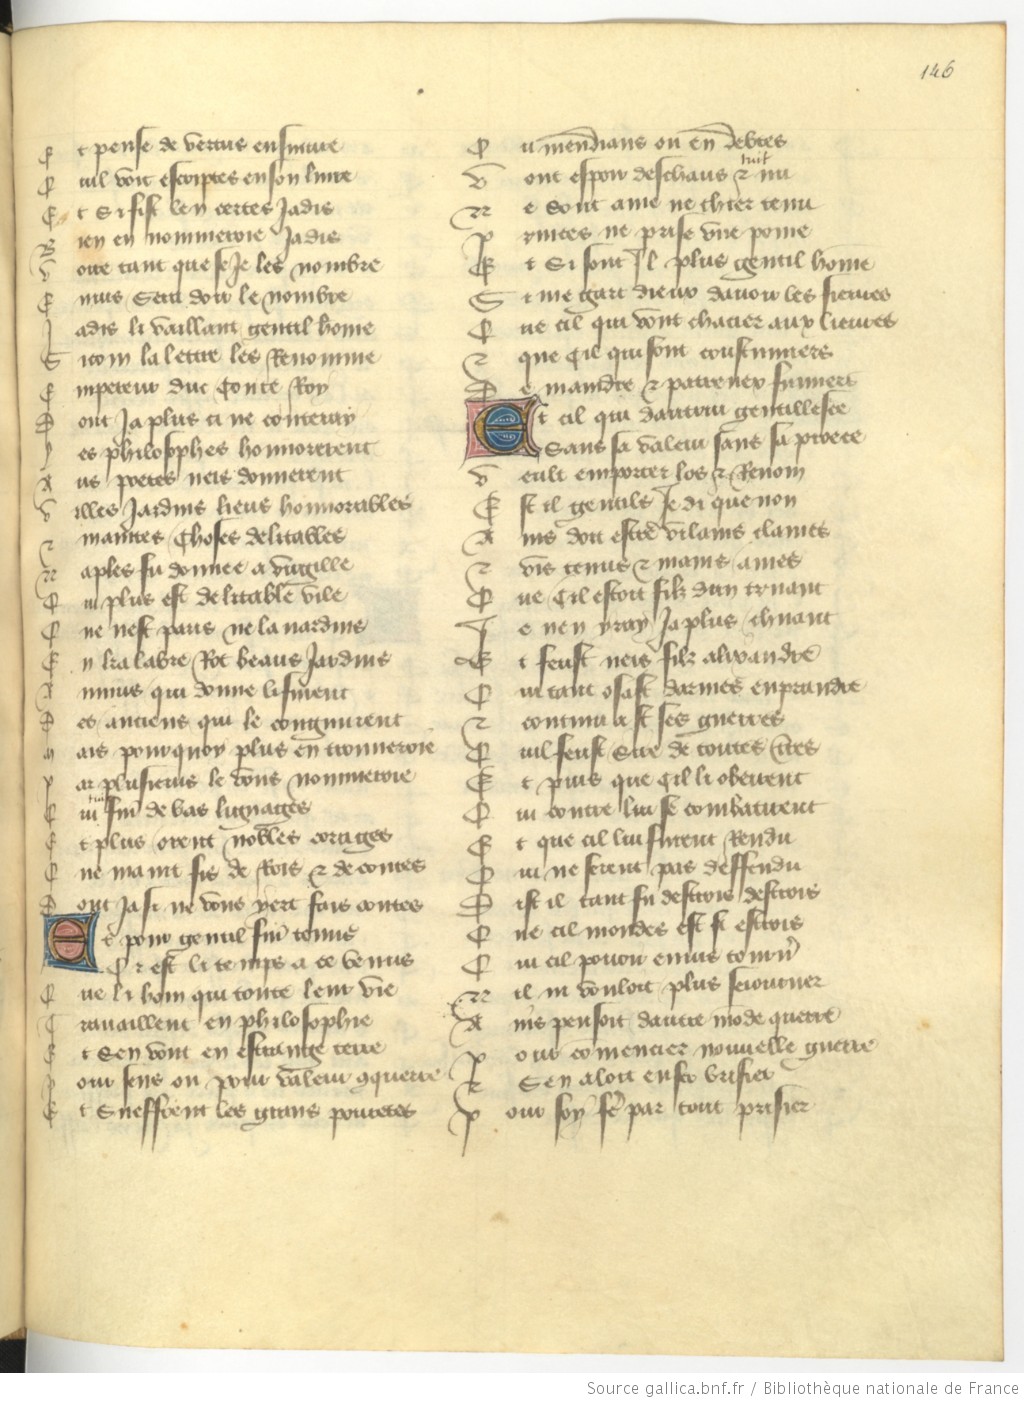 146
E t pense de vertus ensuivre
C uil voit escriptes en son livre
E t Si fist len certes Jadis
B ien en nommeroie Jadis
V oire tant que se Je les nombre
E nnuis Sera doir le nombre
J adis li vaillant gentil home
S icom la lettre les Renomme
E mpereur duc Conte Roy
D ont Ja plus ci ne conteray
L es philosophes honnorerent
A us poetes neis donnerent
V illes Jardins lieus honnorables
z maintes Choses delitables
N aples fu donnee a virgille
Q ui plus est delitable vile
Q ue nest paris ne lavardins
E n kalabre Rot beaus Jardins
A nnius qui donne li furent
D es anciens qui le congnurent
M ais pourquoy plus en nommeroie
P ar plusieurs le vous nommeroie
Q ui tuit furent de bas lignages
E t plus orent nobles corages
Q ue maint fis de Rois z de contes
D ont Ja si ne vous yert fais contes
E t pour gentil furent tenus
Or est li temps a ce venus
Q ue li bom qui toute leur vie
T ravaillent en philosophie
E t Sen vont en estrange terre
P our sens ou pour valeur 9querre
E t Sueffrent les grans povretes
C u mendians ou en debtes
V ont espoir deschaus z tuit nu
N e Sont ame ne chier tenu
P rinces ne prise une pome
E t Si sont Il plus gentil home
S i me gart dieux davoir les fievres
Q ue cil qui vont chacier aux lievres
z que Cil qui sont coustumiers
D e maindre z patrenex fumiers
Et cil qui dautrui gentillesce
Sans sa valeur sans sa proece
V eult emporter los z Renom
E st il gentils Je di que non
A ins doit estre vilains clames
z vis tenus z mains ames
Q ue Cil estoit filz dun truant
J e nen yray Ja plus chuant
E t feust neis filz alixandre
Q ui tant osast darmes enprandre
z continua st ses guerres
Q uil feust Sire de toutes terres
E t puis que Cil li obeirent
Q ui contre lui se combatirent
E t que cil lui furent Rendu
Q ui ne serent pas deffendu
D ist il tant fu destrois destrois
Q ue cil mondes est si estrois
Q ui cil pouoir envis torner
N il ni vouloit plus seiourner
A ins pensoit dautre mode querre
P our comencier nouvelle guerre
z Sen aloit enfer brisier
P our soy fere par tout prisier